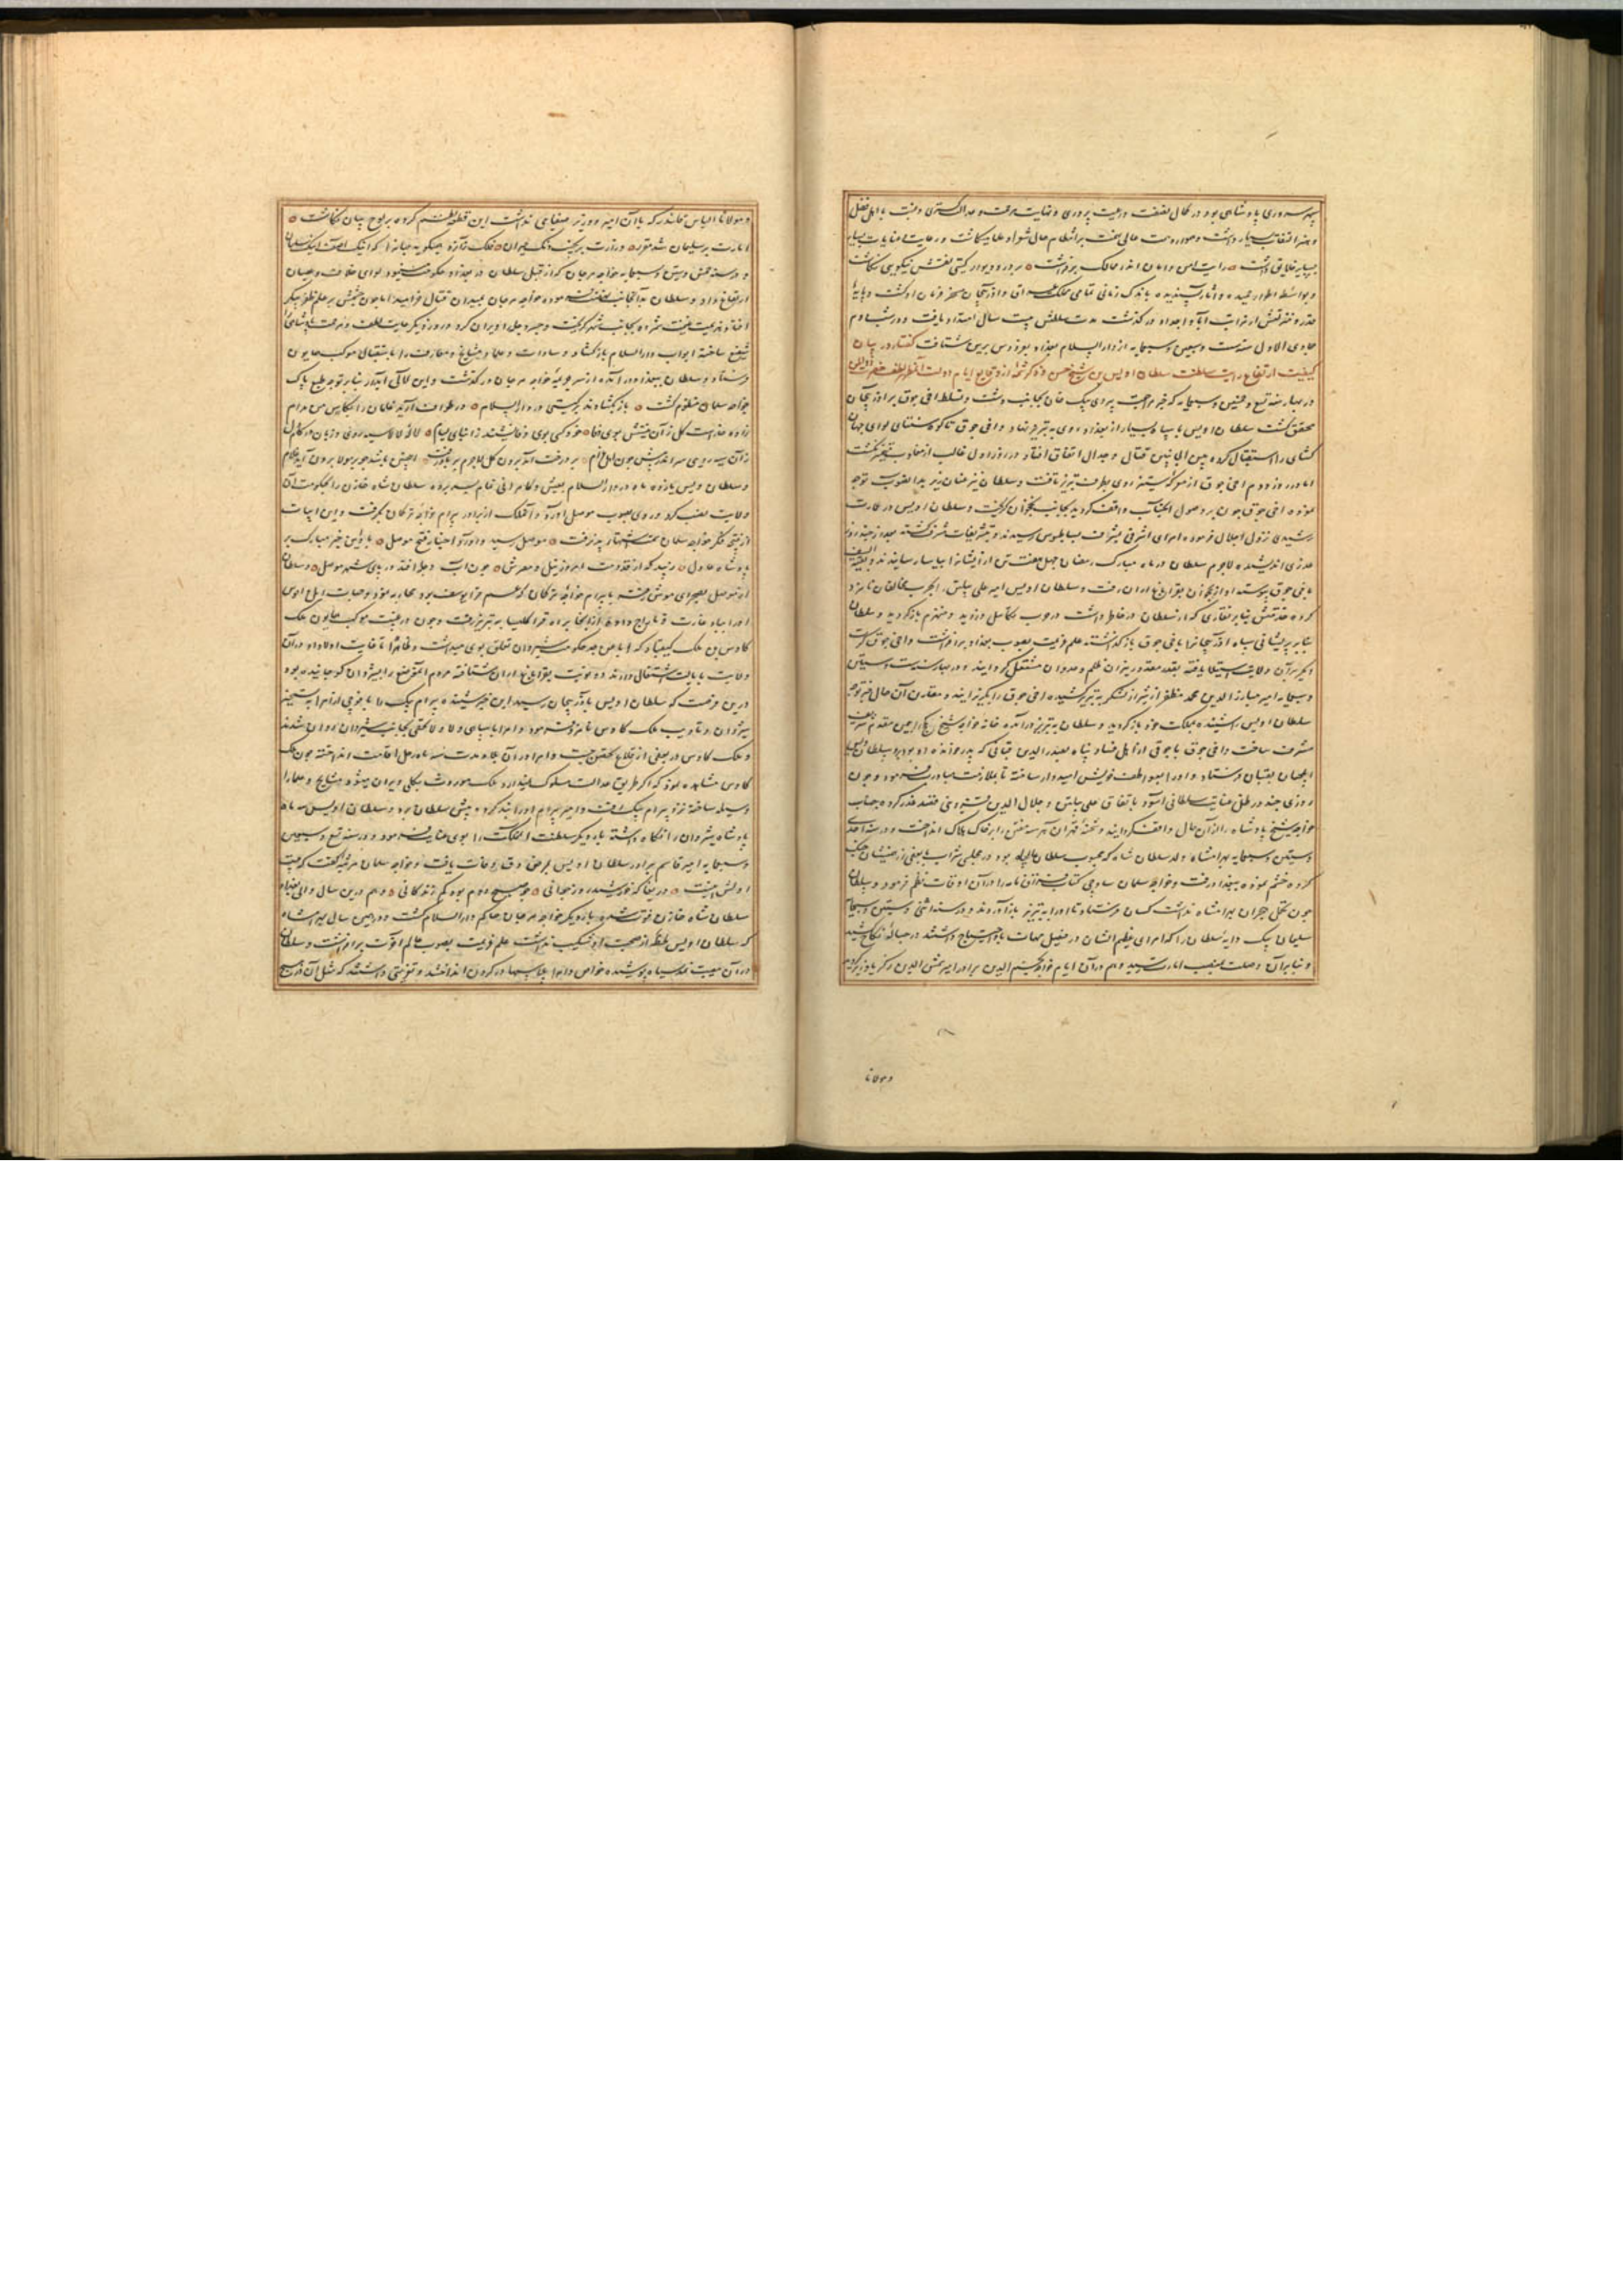 سپهر سروری پادشاهی بود در کمال نصفت و رعیت پروری و نهایت مرحمت و عدالت گستری و محبت با اهل فضل
و هنر التفات بسیار داشت و همواره همت عالی نهمت بر انتظام حال شعرا و علما میگماشت و رعایت و عنایات
بسایر خلایق داشت رایت امن و امان اندر ممالک برفراشت بر در و دیوار گیتی نقش نیکویی نگاشت
و بواسطه اطوار حمیده و آثار پسندیده باندک زمانی تمامی مملکت عراق و آذربیجان مسخر فرمان او گشت و پایهٔ
قدر و منزلتش از مراتب آبا و اجداد در گذشت مدت سلطنتش بیست سال امتداد یافت و در شب دوم
جمادی الاول سنه ست و سبعین و سبعمایه از دار السلام بغداد بفردوس برین شتافت گفتار در بیان
کیفیت ارتفاع رایت سلطنت سلطان اویس بن شیخ حسن و ذکر شمه از وقایع ایام دولت آن
در بهار سنه تسع و خمسین و سبعمایه که خبر مراجعت بردی بیک خان بجانب دشت و تسلط اخی جوق بر آذربیجان
محقق گشت سلطان اویس با سپاه بسیار از بغداد روی به تبریز نهاد و اخی جوق تا کوه سنتای لوای جهان
گشای را استقبال کرده بین الجانبین قتال و جدال اتفاق افتاد و در روز اول غالب از مغلوب متمیز نگشت
اما در روز دوم اخی جوق از معرکه ستیز روی بطرف تبریز تافت و سلطان نیز عنان یکران بدان صوب توجه
نموده اخی جوق چون بر وصول آنجناب واقف گردید بجانب نخجوان گریخت و سلطان اویس در عمارت
رشیدی نزول اجلال فرموده امرای اشرفی بشرف بساط بوس رسیدند و بتشریفات مشرف گشته بعد از چند روز
غدری اندیشیدند لاجرم سلطان در ماه مبارک رمضان چهل و هفت تن از ایشانرا بیاسا رسانیدند و
باخی جوق پیوستند او از نخجوان بقراباغ اران رفت و سلطان اویس امیر علی پیلتن را بحرب مخالفان نامزد
کرده مقدمتش بنابر نقاری که از سلطان در خاطر داشت در حرب تکاسل ورزید و منهزم بازگردید و سلطان
بنابر پریشانی سپاه آذربیجانرا باخی جوق بازگذاشته علم عزیمت بصوب بغداد برافراشت و اخی جوق
دیگر بر آن ولایت استیلا یافته بقدر مقدور نیران ظلم و عدوان مشتعل گردانید و در بهار سنه ستین
و سبعمایه امیر مبارز الدین محمد مظفر از شیراز لشکر به تبریز کشیده اخی جوق را بگریزانید و مقارن آن حال خبر توجه
سلطان اویس را شنیده بمملکت خود بازگردید و سلطان به تبریز درآمده خانه خواجه شیخ
مشرف ساخت و اخی جوق با جوقی از اهل فساد پناه بصدر الدین قبانی که پدر خوانده او بود برد و سلطان
ایلچیان بقبان فرستاد و او را بعواطف خویش امیدوار ساخته تا بملازمت مبادرت نمود و چون
روزی چند در ظل عنایت سلطانی آسود باتفاق علی پیلتن و جلال الدین قزوینی قصد غدر کرده جناب
خواجه شیخ پادشاه را از آن حال واقف گردانید و شحنهٔ قهرمان هر سه مفتن را بر خاک هلاک انداخت و در سنه احدی
و ستین و سبعمایه بهرامشاه ولد سلطان شاه که محبوب سلطان بود در مجلس شراب با بعضی از همنشینان جنگ
کرده خشم نموده ببغداد رفت و خواجه سلمان ساوجی کتاب فراق نامه را در آن اوقات نظم فرمود و سلطان
چون تحمل هجران بهرامشاه نداشت کسان فرستاد تا او را به تبریز باز آوردند و در سنه اثنی و ستین و سبعمایه
سلیمان بیک دایهٔ سلطان را که امرای عظیم الشان در فیصل مهمات باو احتیاج داشتند در حبالهٔ نکاح کشید
و بنابر آن وصلت بمنصب امارت رسید و هم در آن ایام خواجه نجم الدین برادر امیر شمس الدین زکریا وزیر گردید
و مولانا
و مولانا الیاس قلندر که با آن امیر و وزیر صفایی نداشت این قطعه نظم کرده بر لوح بیان نگاشت
امارت بر سلیمان شد مقرر وزارت بر نجیب فلک تازه
و در سنه خمس و ستین و سبعمایه خواجه مرجان که از قبل سلطان در بغداد حکومت مینمود لوای خلاف و عصیان
ارتفاع داد و سلطان بدانجانب نهضت فرموده خواجه مرجان بمیدان قتال خرامید اما چون چشمش بر علم ظفر پیکر
افتاد هزیمت غنیمت شمرده بجانب شهر گریخت و جسر دجله را ویران کرد و روز دیگر حمایت لطف و مرحمت پادشاهی
شفیع ساخته ابواب دار السلام بازگشاد و سادات و علما و مشایخ و معارف را باستقبال موکب همایون
فرستاد و سلطان ببغداد درآمده از سر جریمهٔ خواجه مرجان درگذشت و این لآلی آبدار بنابر توجه طبع پاک
خواجه سلمان منظوم گشت باز بگشادند در گیتی در دار السلام
و سلطان اویس یازده ماه در دار السلام بعیش و کامرانی تمام بسر برده سلطان شاه خازن را بحکومت آن
ولایت نصب کرد و روی بصوب موصل آورد و آن ملک از برادر بیرام خواجه ترکمان بگرفت و این ابیات
از نتایج فکر خواجه سلمان سمت اشتهار پذیرفت موصل رسید و آورد اخبار فتح موصل
پادشاه عادل رسید که از قدومت امروز نیل و مصرش چون آب دجله افتد در پای شهر موصل و سلطان
از موصل بصحرای موش رفته با بیرام خواجه ترکمان که عم قرا یوسف بود محاربه نمود و صفات ایل و اوس
او را بباد غارت و تاراج داده از آنجا براه قرا کلیسا به تبریز رفت و چون در غیبت موکب همایون ملک
کاوس بن ملک کیقباد که اباً عن جد حکومت شیروان تعلق بوی میداشت و ظاهراً تا غایت اولاد او در آن
ولایت بایالت اشتغال دارند دو نوبت بقراباغ اران شتافته مردم آن موضع را بشیروان کوچانیده بود
درین فرصت که سلطان اویس بآذربیجان رسید این خبر شنیده بیرام بیک را با فوجی از امرا به تسخیر
شیروان و تادیب ملک کاوس نامزد فرمود و امرا با سپاهی ولا ولا تحصی بجانب شیروان روان شدند
و ملک کاوس در بعضی از قلاع تحصن جست و امرا در آن بلاد مدت سه ماه رحل اقامت انداخته چون ملک
کاوس مشاهده نمود که اگر طریق عدالت مسلوک نمیدارد ملک موروث بکلی ویران میشود مشایخ و علما را
وسیله ساخته نزد بیرام بیک رفت و امیر بیرام او را بند کرده پیش سلطان برد و سلطان اویس سه ماه
پادشاه شیروان را نگاه داشته بار دیگر سلطنت آن مملکت را بوی عنایت فرمود و در سنه تسع و ستین
و سبعمایه امیر قاسم برادر سلطان اویس بمرض دق وفات یافت و خواجه سلمان مرثیه گفت که بیت
اولش اینست دریغا که خورشید روز جوانی چو صبح دوم بود کم زندگانی و هم درین سال والی بغداد
سلطان شاه خازن فوت شده بار دیگر خواجه مرجان حاکم دار السلام گشت و در همین سال میر شاه
که سلطان اویس لحظهٔ از صحبت او شکیب نداشت علم عزیمت بصوب عالم آخرت برافراشت و سلطان
در آن مصیبت نمد سیاه پوشیده خواص و امرا پلاسها در گردن انداختند و تعزیتی داشتند که مثل آن در هیچ